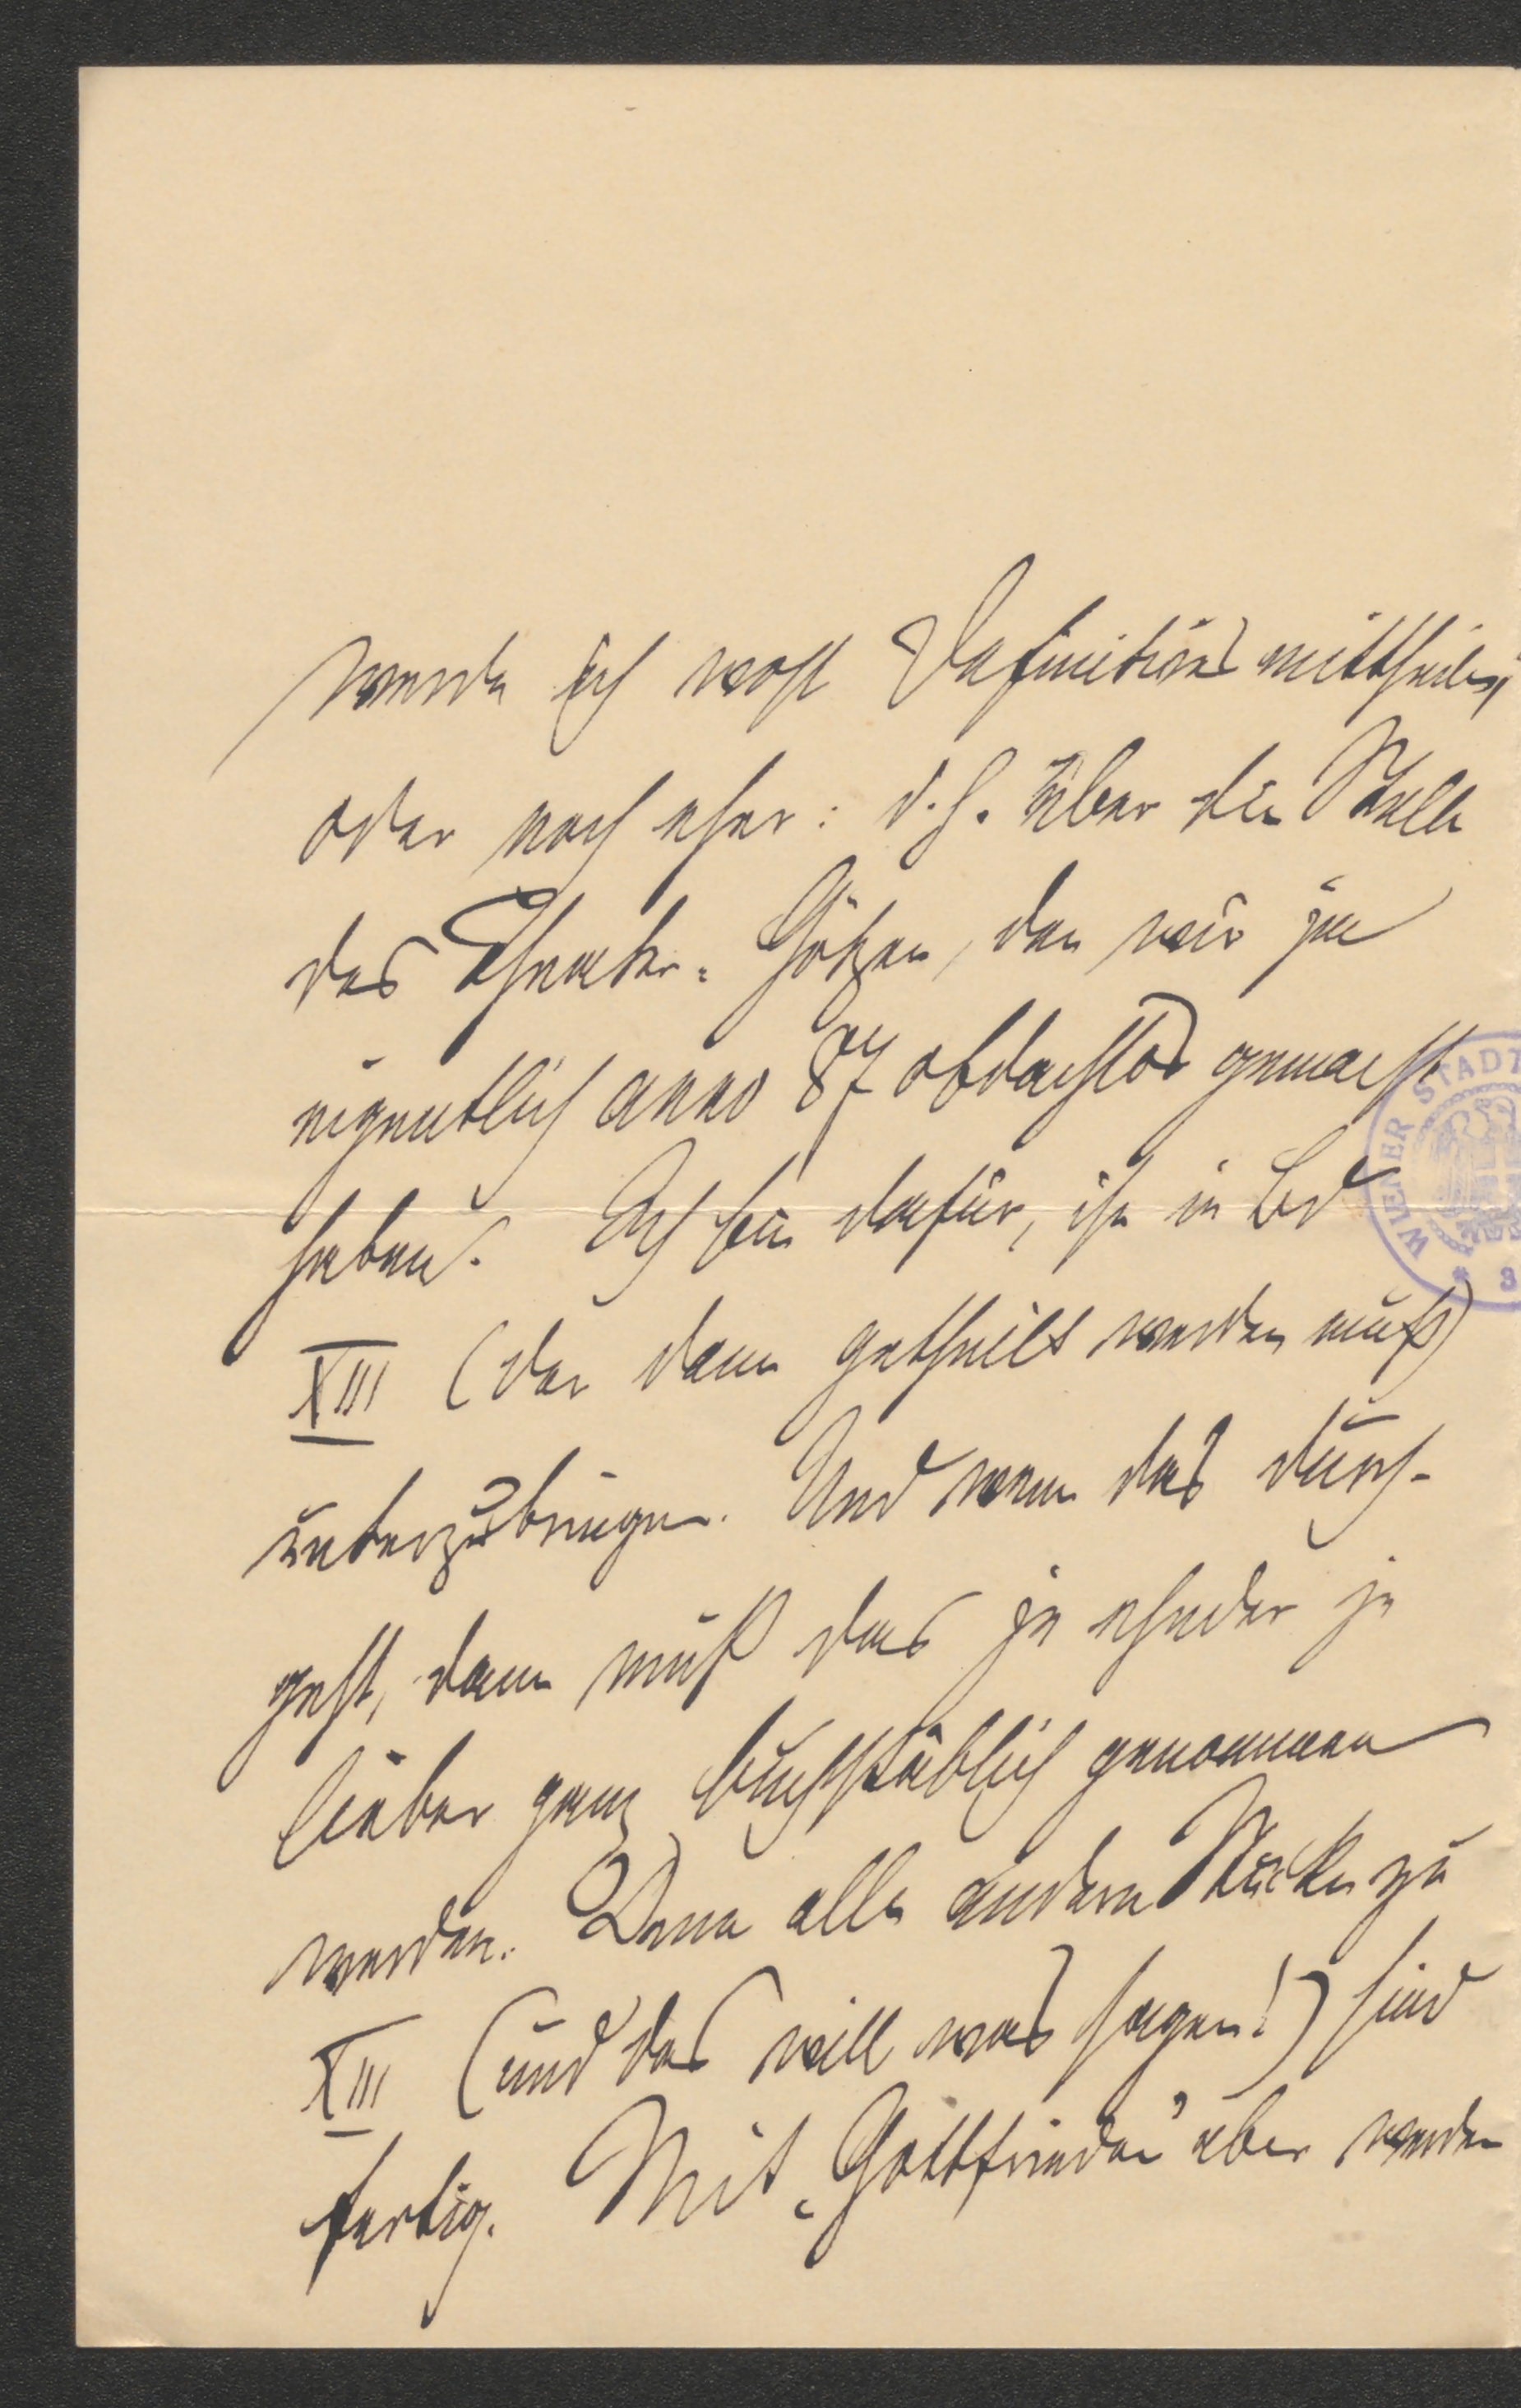 werde ich wohl Definitives mittheilen,
oder noch eher: d. h. über die Stelle
des Theater-Götzen, den wir ja
eigentlich anno 87 obdachlos gemacht
haben. Ich bin dafür, ihn in Bd
XIII (der dann getheilt werden muß)
unterzubringen. Und wenn das durch-
geht, dann muß das je ehnder je
lieber ganz buchstäblich genommen
werden. Denn alle andern Stücke zu
XIII (und das will was sagen!) sind
fertig. Mit „Gottfrieden" aber werden
WIENER STADT